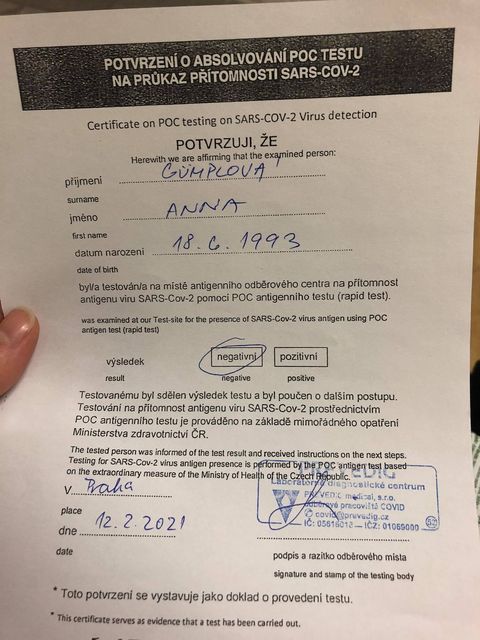 POTVRZENÍ O ABSOLVOVÁNÍ POC TESTU
NA PRŮKAZ PŘÍTOMNOSTI SARS-COV-2
Certificate on POC testing on SARS-COV-2 Virus detection
POTVRZUJI, ŽE
Herewith we are affirming that the examined person:
příjmení GÜMPLOVÁ
surname
jméno ANNA
first name
datum narození 18. 6. 1993
date of birth
byl/a testován/a na místě antigenního odběrového centra na přítomnost
antigenu viru SARS-Cov-2 pomocí POC antigenního testu (rapid test).
was examined at our Test-site for the presence of SARS-Cov-2 virus antigen using POC
antigen test (rapid test)
výsledek negativní pozitivní
result negative positive
Testovanému byl sdělen výsledek testu a byl poučen o dalším postupu.
Testování na přítomnost antigenu viru SARS-Cov-2 prostřednictvím
POC antigenního testu je prováděno na základě mimořádného opatření
Ministerstva zdravotnictví ČR.
The tested person was informed of the test result and received instructions on the next steps.
Testing for SARS-Cov-2 virus antigen presence is performed by the POC antigen test based
on the extraordinary measure of the Ministry of Health of the Czech Republic.
Laboratorně diagnostické centrum
medical, s.r.o.
odběrové pracoviště COVID
IČZ: 01069000
V Praha
place
dne 12. 2. 2021
date
podpis a razítko odběrového místa
signature and stamp of the testing body
* Toto potvrzení se vystavuje jako doklad o provedení testu.
* This certificate serves as evidence that a test has been carried out.